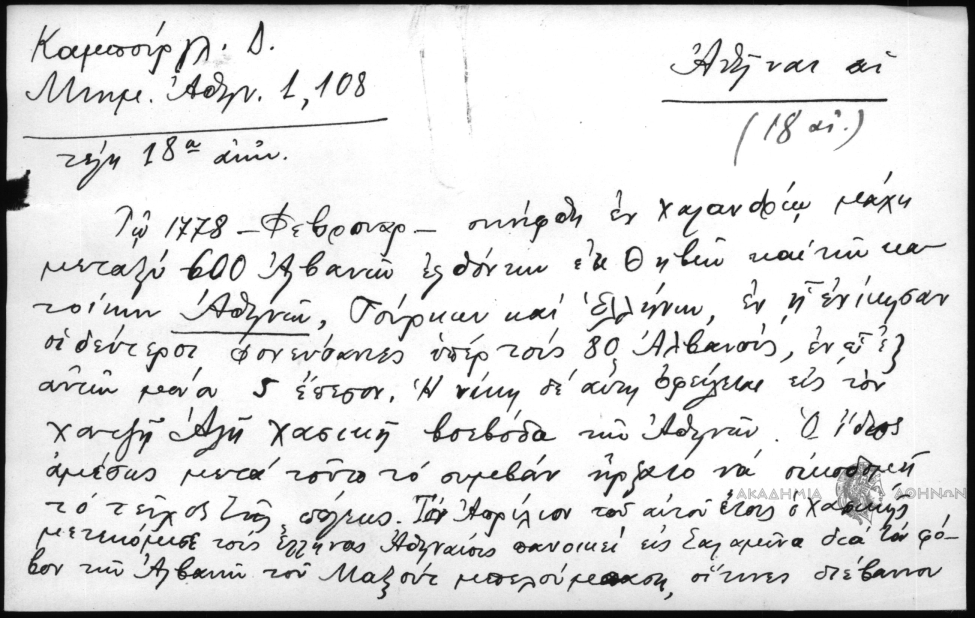 Καμπούρογλ. Δ.
Μνημ. Ἀθην. 1, 108
τέλη 18ου αἰῶν.
Ἀθῆναι αἱ
(18 αἰ.)
Τῷ 1778 – Φεβρουαρ – συνήφθη ἐν Χαλανδρίῳ μάχη
μεταξὺ 600 Ἀλβανῶν ἐλθόντων ἐκ Θηβῶν καὶ τῶν κα-
τοίκων Ἀθηνῶν, Τούρκων καὶ Ἑλλήνων, ἐν ᾗ ἐνίκησαν
οἱ δεύτεροι φονεύσαντες ὑπὲρ τοὺς 80 Ἀλβανούς, ἐν ᾧ ἐξ
αὐτῶν μόνο 5 ἔπεσον. Ἡ νίκη δὲ αὕτη ὀφείλεται εἰς τὸν
χαντζῆ Ἀλῆ Χασεκῆ βοεβόδα τῶν Ἀθηνῶν. Ὁ ἴδιος
ἀμέσως μετὰ τοῦτο τὸ συμβὰν ἤρξατο νὰ οἰκοδομῇ
τὸ τεῖχος τῆς πόλεως. Τὸν Ἀπρίλιον τοῦ αὐτοῦ ἔτους ὁ Χασεκῆς
μετεκόμισε τοὺς Ἕλληνας Ἀθηναίους πανοικεὶ εἰς Σαλαμῖνα διὰ τὸν φό-
βον τῶν Ἀλβανῶν τοῦ Μαξοὺτ, οἵτινες διέβαινον
ΑΚΑΔΗΜΙΑ ΑΘΗΝΩΝ